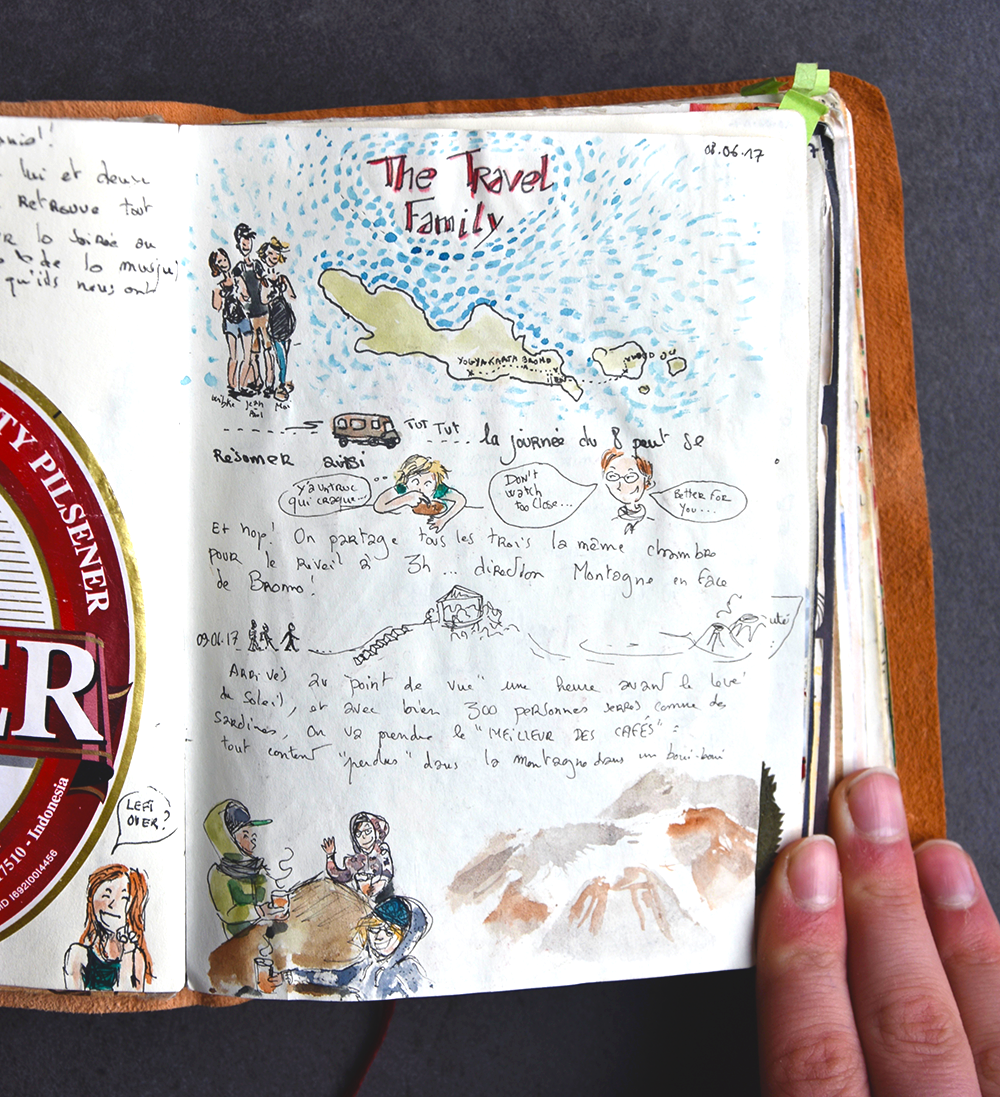 lui et deux
Retrouve tout
la soirée au
de la musique
qu'ils nous ont
TY PILSENER
ER
17510 - Indonesia
ID 169210014456
LEFT
OVER?
08.06.17
The Travel
Family
Jean
Paul
YOGYAKARTA BROMO
IJEN
TUT TUT
la journée du 8 peut se
Résumer ainsi
Y'a un truc
qui craque...
Don't
watch
too close...
Better for
you...
Et hop! On partage tous les trois la même chambre
pour le Réveil à 3h ... direction Montagne en face
de Bromo!
09.06.17
Arrivés au "point de vue" une heure avant le levé
du soleil, et avec bien 300 personnes serrés comme des
sardines, on va prendre le "MEILLEUR DES CAFÉS" =
tout content "perdus" dans la montagne dans un boui-boui